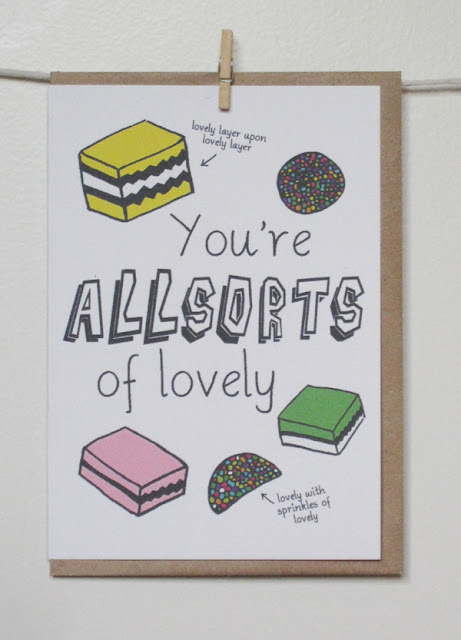 lovely layer upon
lovely layer
You're
ALLSORTS
of lovely
lovely with
sprinkles of
lovely